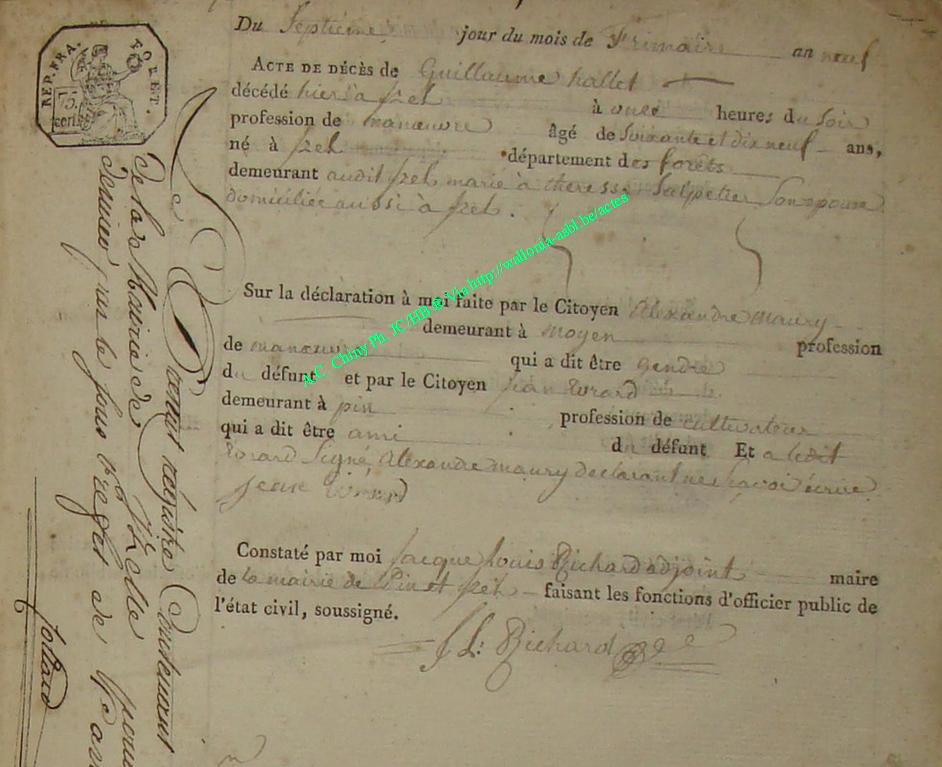 REP. FRA. FORET.
Du Septieme jour du mois de Frimaire an neuf
ACTE DE DÉCÈS de Guillaume hallet
décédé hier à izel à onze heures du Soir
profession de manœuvre âgé de Soixante et dix neuf ans,
né à izel département des forets
demeurant audit izel marié à theresse Salpetier Son epouse
domiciliée aussi à izel.
Sur la déclaration à moi faite par le Citoyen Alexandre maury
demeurant à moyen profession
de manœuvre qui a dit être Gendre
du défunt et par le Citoyen jean Evrard
demeurant à pin profession de cultivateur
qui a dit être ami du défunt Et a ledit
Evrard Signé, Alexandre maury declarant ne Scavoir écrire
jean Evrard
Constaté par moi jacque louis Richard adjoint maire
de la mairie de Pin et izel faisant les fonctions d'officier public de
l'état civil, soussigné.
J L: Richard
Le Présent régistre Contenant
de la Mairie de pour
dernier par le sous préfet de
A.C. Chiny Ph. JC/HB © Via http://wallonia-asbl.be/actes